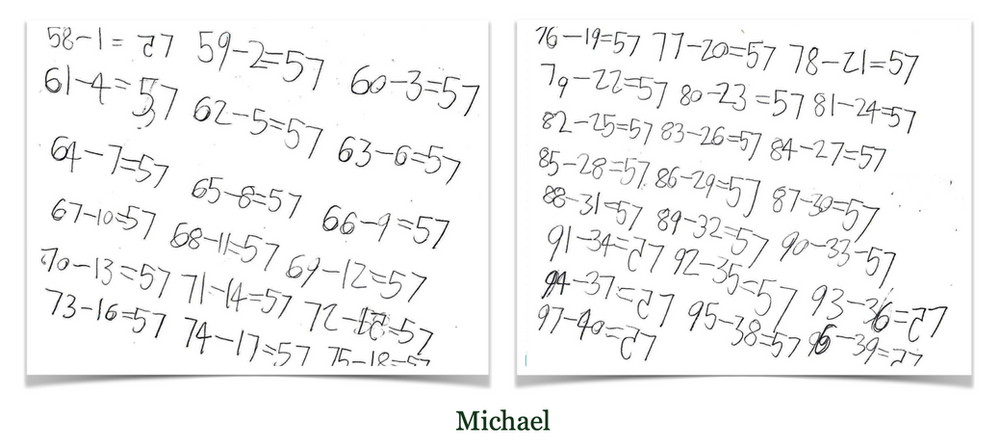 58-1= 57 59-2=57 60-3=57
61-4=57 62-5=57 63-6=57
64-7=57 65-8=57 66-9=57
67-10=57 68-11=57 69-12=57
70-13=57 71-14=57 72-15=57
73-16=57 74-17=57 75-18=57
76-19=57 77-20=57 78-21=57
79-22=57 80-23=57 81-24=57
82-25=57 83-26=57 84-27=57
85-28=57 86-29=57 87-30=57
88-31=57 89-32=57 90-33-57
91-34=57 92-35=57 93-36=57
94-37=57 95-38=57 96-39=57
97-40=57
Michael